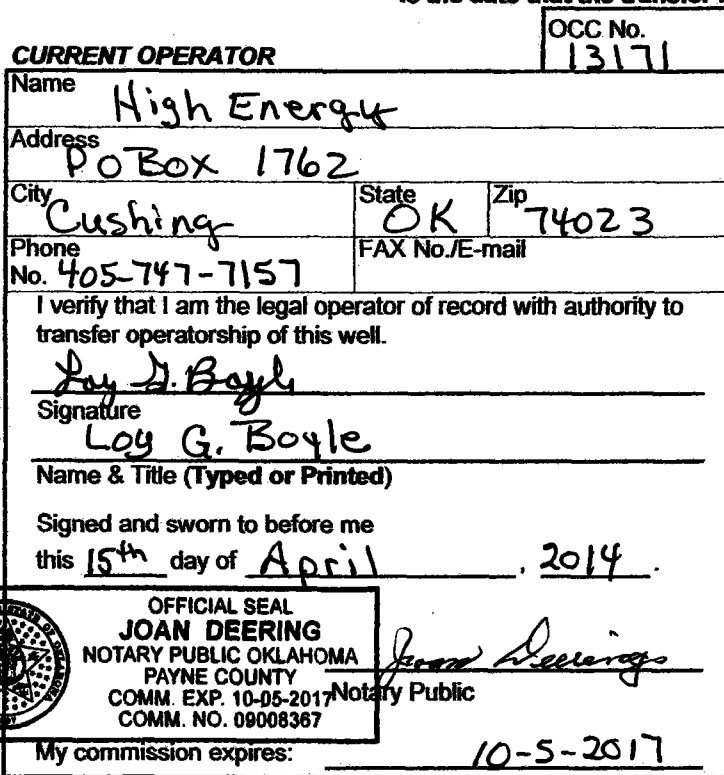 is the date that the transfer
OCC No.
13171
CURRENT OPERATOR
Name
High Energy
Address
PO Box 1762
City
Cushing
State
OK
Zip
74023
Phone
No. 405-747-7157
FAX No./E-mail
I verify that I am the legal operator of record with authority to
transfer operatorship of this well.
Loy G. Boyle
Signature
Loy G. Boyle
Name & Title (Typed or Printed)
Signed and sworn to before me
this 15th day of April, 2014.
OFFICIAL SEAL
JOAN DEERING
NOTARY PUBLIC OKLAHOMA
PAYNE COUNTY
COMM. EXP. 10-05-2017
COMM. NO. 09008367
Joan Deering
Notary Public
My commission expires: 10-5-2017